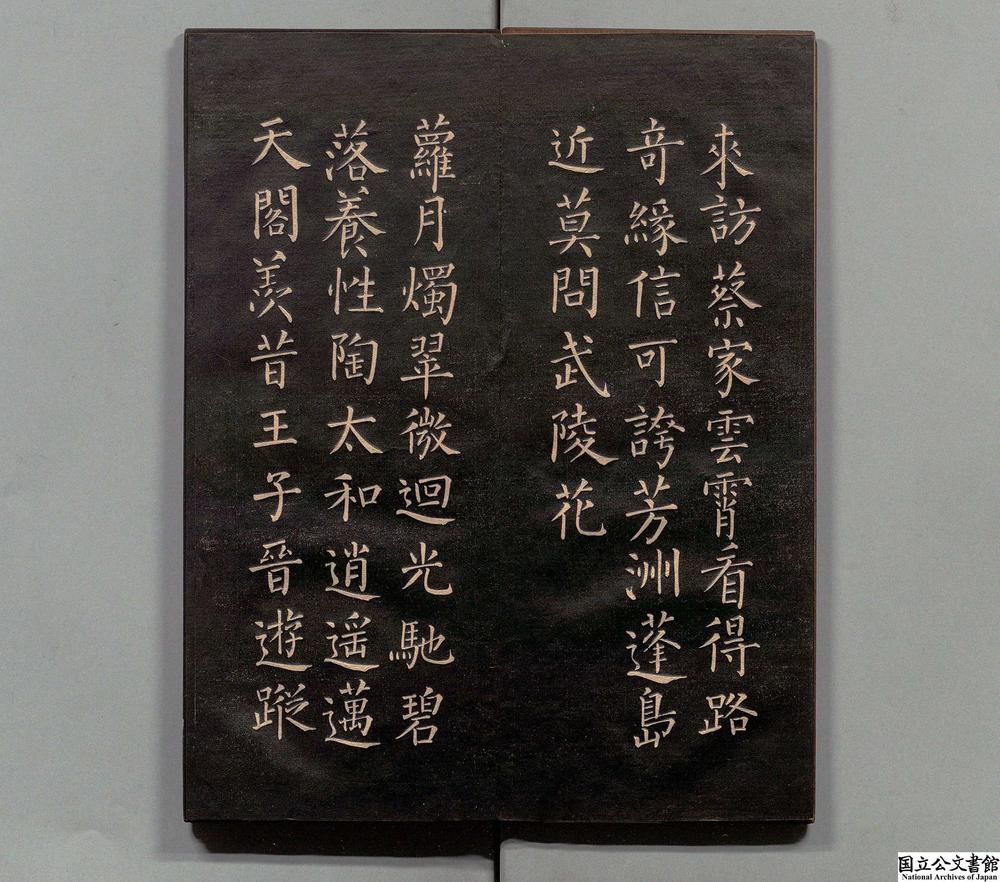 來訪蔡家雲霄看得路
竒緣信可誇芳洲蓬島
近莫問武陵花
蘿月燭翠微迴光馳碧
落養性陶太和逍遥邁
天閣羨昔王子晉遊蹤
国立公文書館
National Archives of Japan